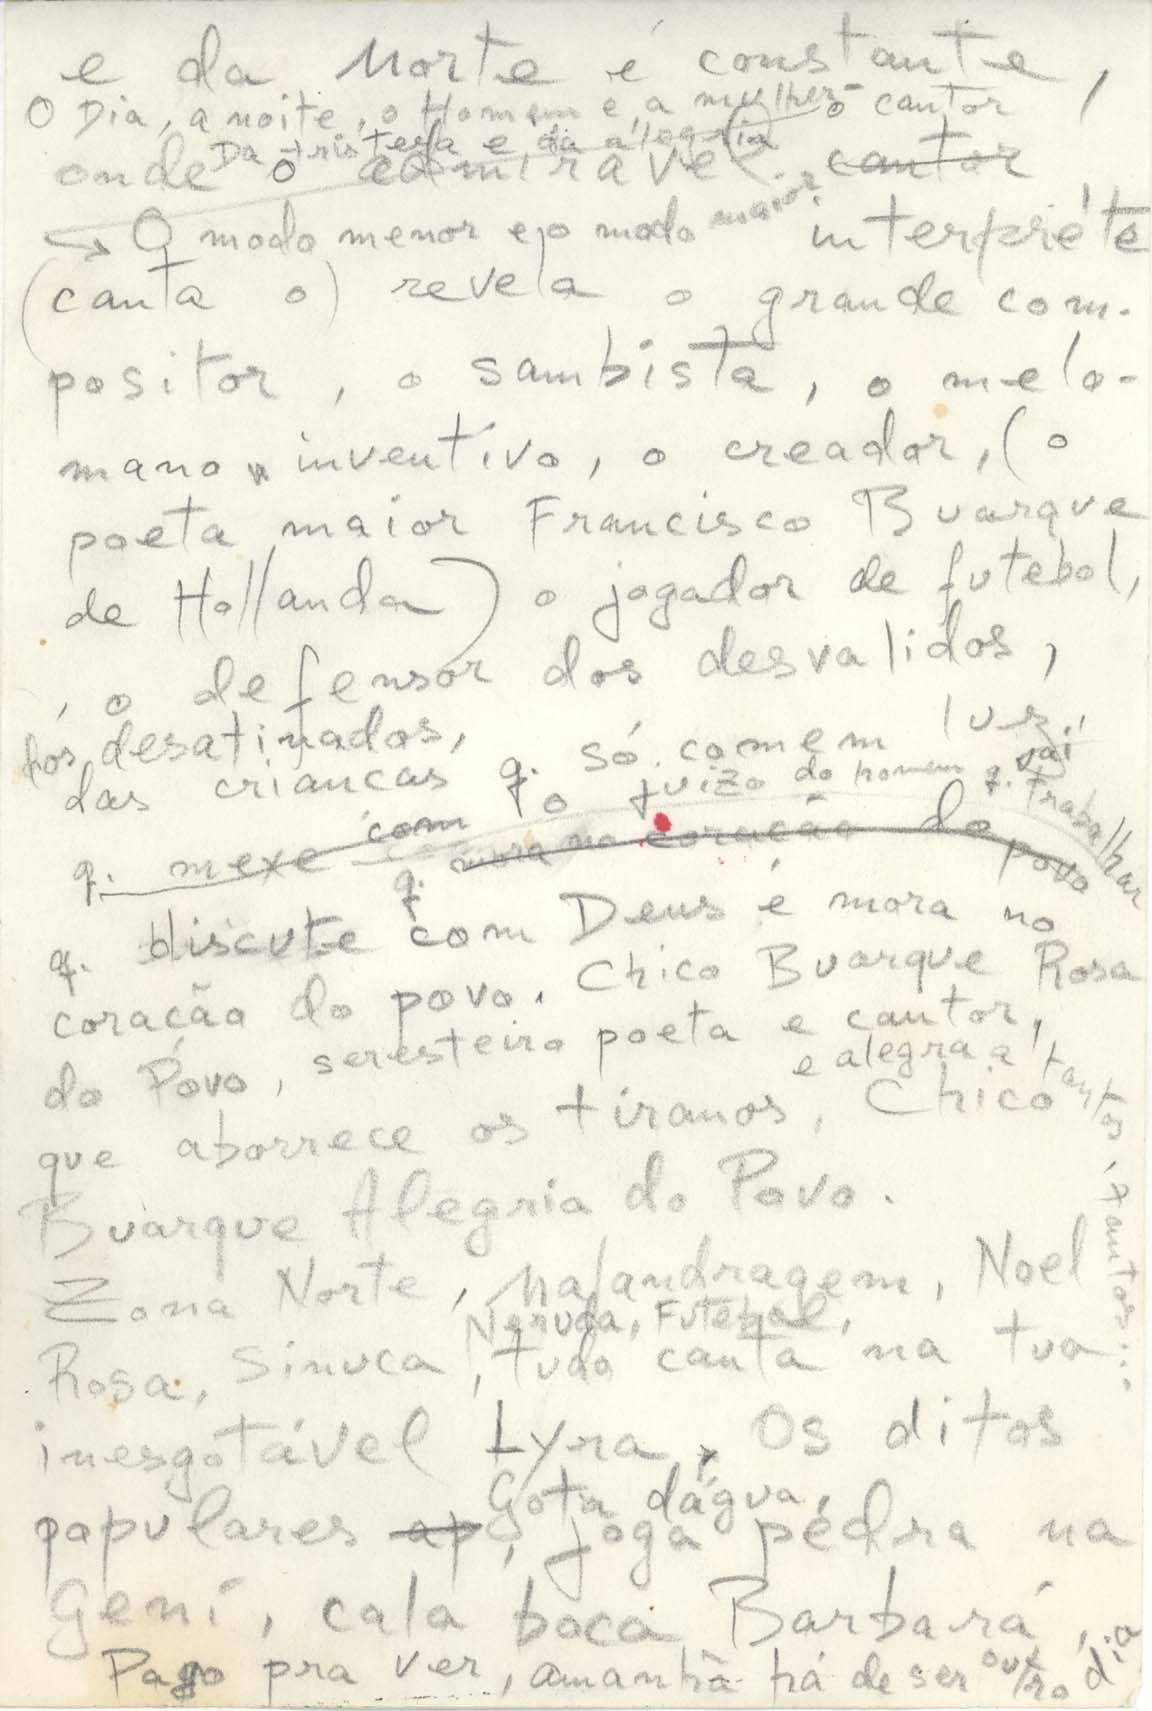 e da Morte é constante,
O Dia, a noite, o Homem e a mulher o cantor
Da tristeza e da alegria
onde o admirável cantor
O modo menor e o modo maior intérprete
(canta o) revela o grande com-
positor, o sambista, o melo-
mano inventivo, o creador, (o
poeta maior Francisco Buarque
de Hollanda) o jogador de futebol,
, o defensor dos desvalidos,
dos desatinados,
das criancas q. só comem luz,
o juizo do homem q. vai trabalhar
q. mexe com
q. mora no coração do povo
q. discute com Deus e mora no
coracão do povo. Chico Buarque Rosa
do Povo, seresteiro poeta e cantor,
e alegra a tantos, tantos...
que aborrece os tiranos, Chico
Buarque Alegria do Povo.
Zona Norte, Malandragem, Noel
Neruda, Futebol,
Rosa, Sinuca, tudo canta na tua
inesgotável Lyra, Os ditos
Gota dágua,
populares ap, joga pedra na
Geni, cala boca Barbará,
Pago pra ver, amanhã há de ser outro dia